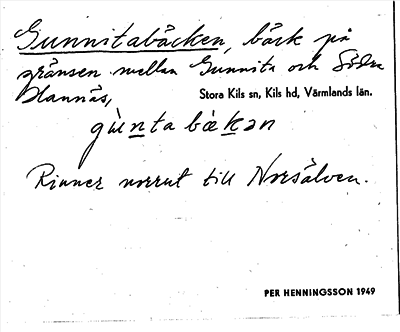 Gunnitabäcken, bäck på
gränsen mellan Gunnita och Södra
Hannäs, Stora Kils sn, Kils hd, Värmlands län.
gùnta bækən
Rinner norrut till Norsälven.
PER HENNINGSSON 1949